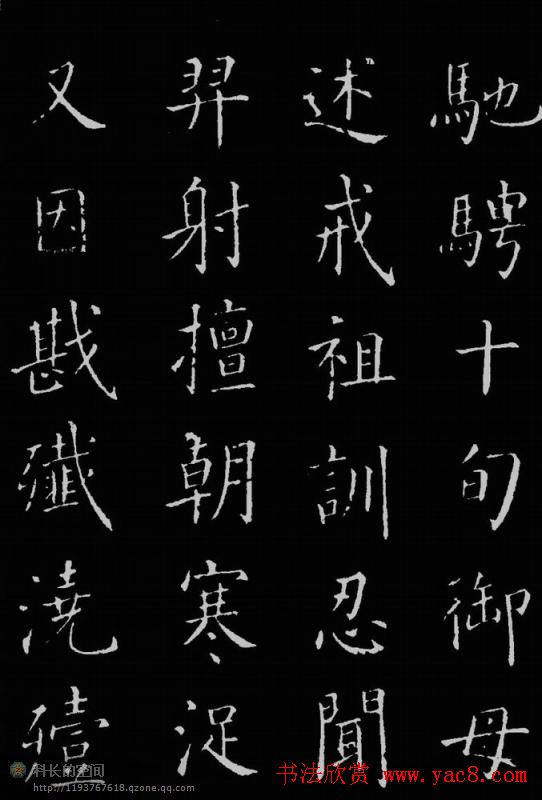 馳騁十旬御母
述戒祖訓忍聞
羿射擅朝寒浞
又因戡殲澆殪
科长的空间
http://1193767618.qzone.qq.com
书法欣赏 www.yac8.com